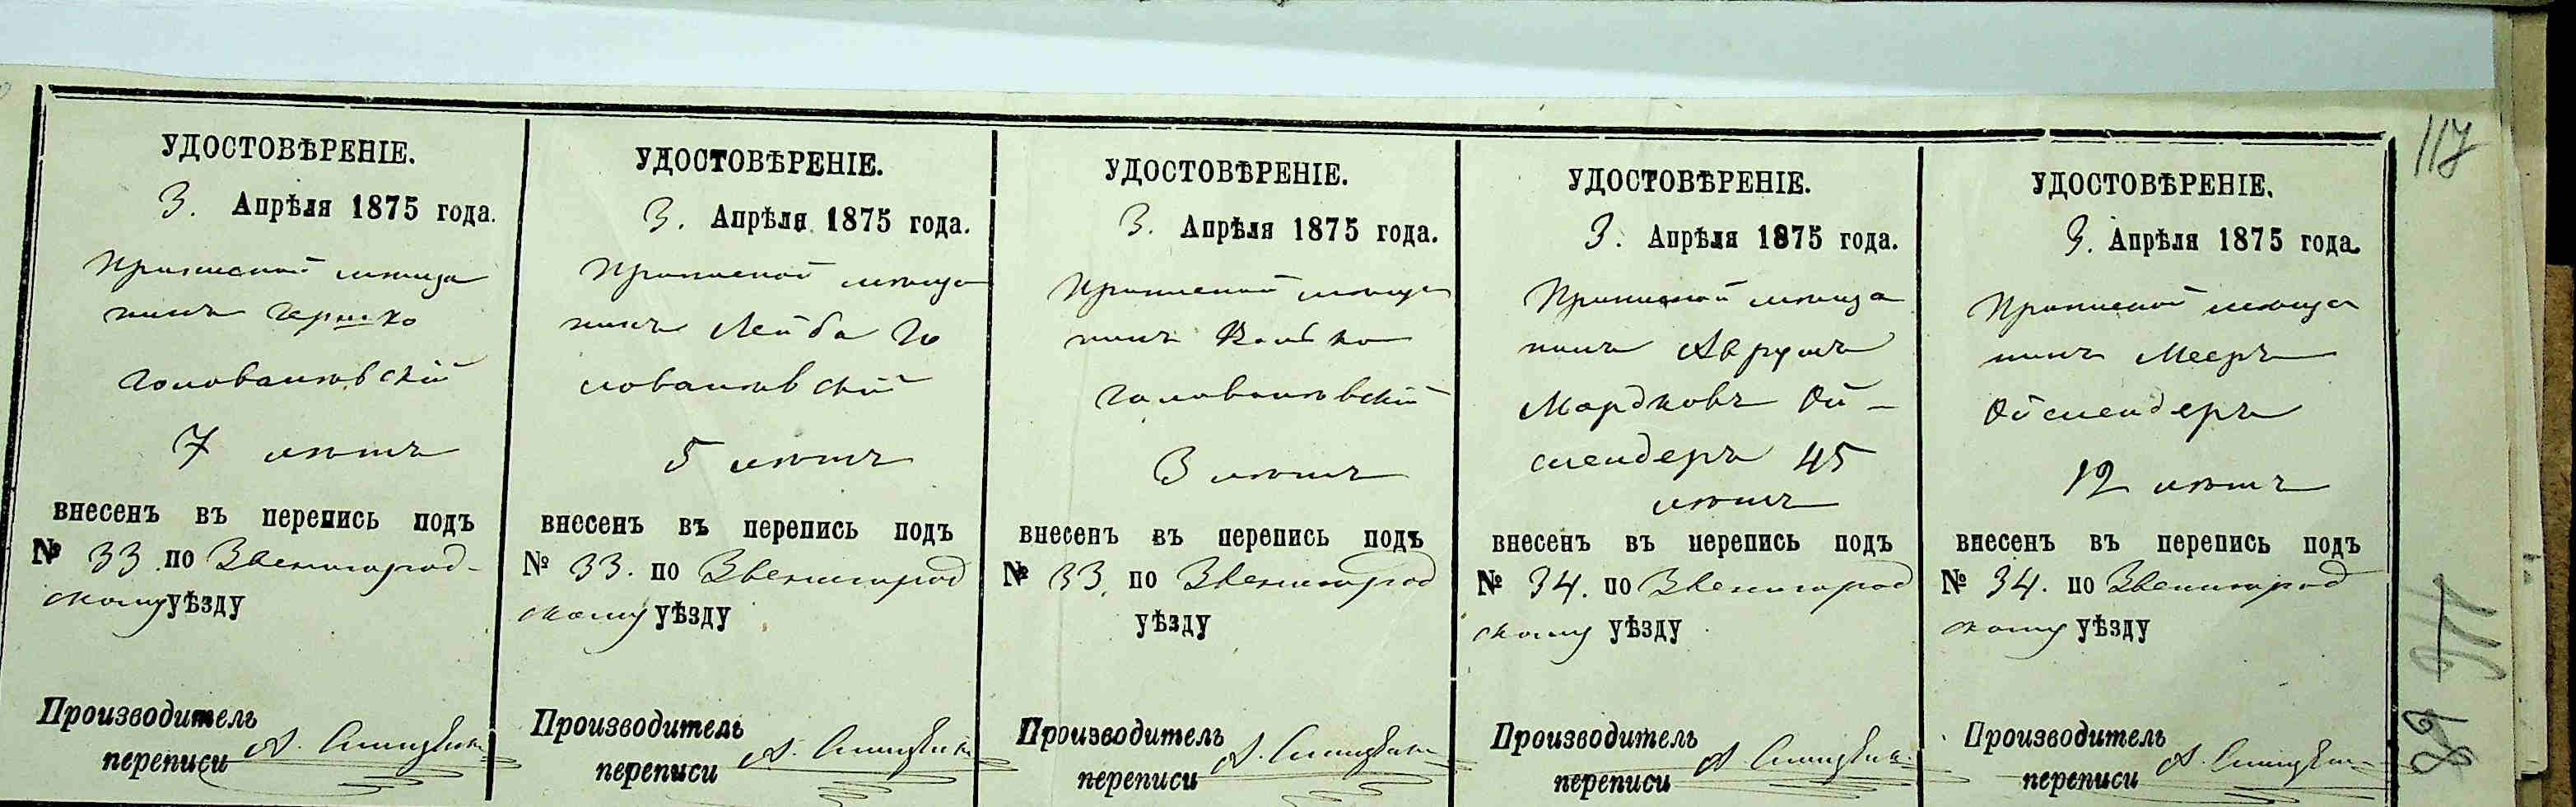 117
УДОСТОВѢРЕНІЕ.
3. Апрѣля 1875 года.
Приписной мѣща
нинъ Гершко
Голованевскій
7 лѣтъ
внесенъ въ перепись подъ
№ 33. по Звенигород-
скому уѣзду
Производитель
переписи
УДОСТОВѢРЕНІЕ.
3. Апрѣля 1875 года.
Приписной мѣща
нинъ Лейба Го
лованевскій
5 лѣтъ
внесенъ въ перепись подъ
№ 33. по Звенигород
скому уѣзду
Производитель
переписи
УДОСТОВѢРЕНІЕ.
3. Апрѣля 1875 года.
Приписной мѣща
нинъ Волько
Голованевскій
3 лѣтъ
внесенъ въ перепись подъ
№ 33. по Звенигород
уѣзду
Производитель
переписи
УДОСТОВѢРЕНІЕ.
3. Апрѣля 1875 года.
Приписной мѣща
нинъ Аврумъ
Мордковъ Ой-
слендеръ 45
лѣтъ
внесенъ въ перепись подъ
№ 34. по Звенигород
скому уѣзду
Производитель
переписи
УДОСТОВѢРЕНІЕ.
3. Апрѣля 1875 года.
Приписной мѣща
нинъ Мееръ
Ойслендеръ
12 лѣтъ
внесенъ въ перепись подъ
№ 34. по Звенигород
скому уѣзду
Производитель
переписи
89